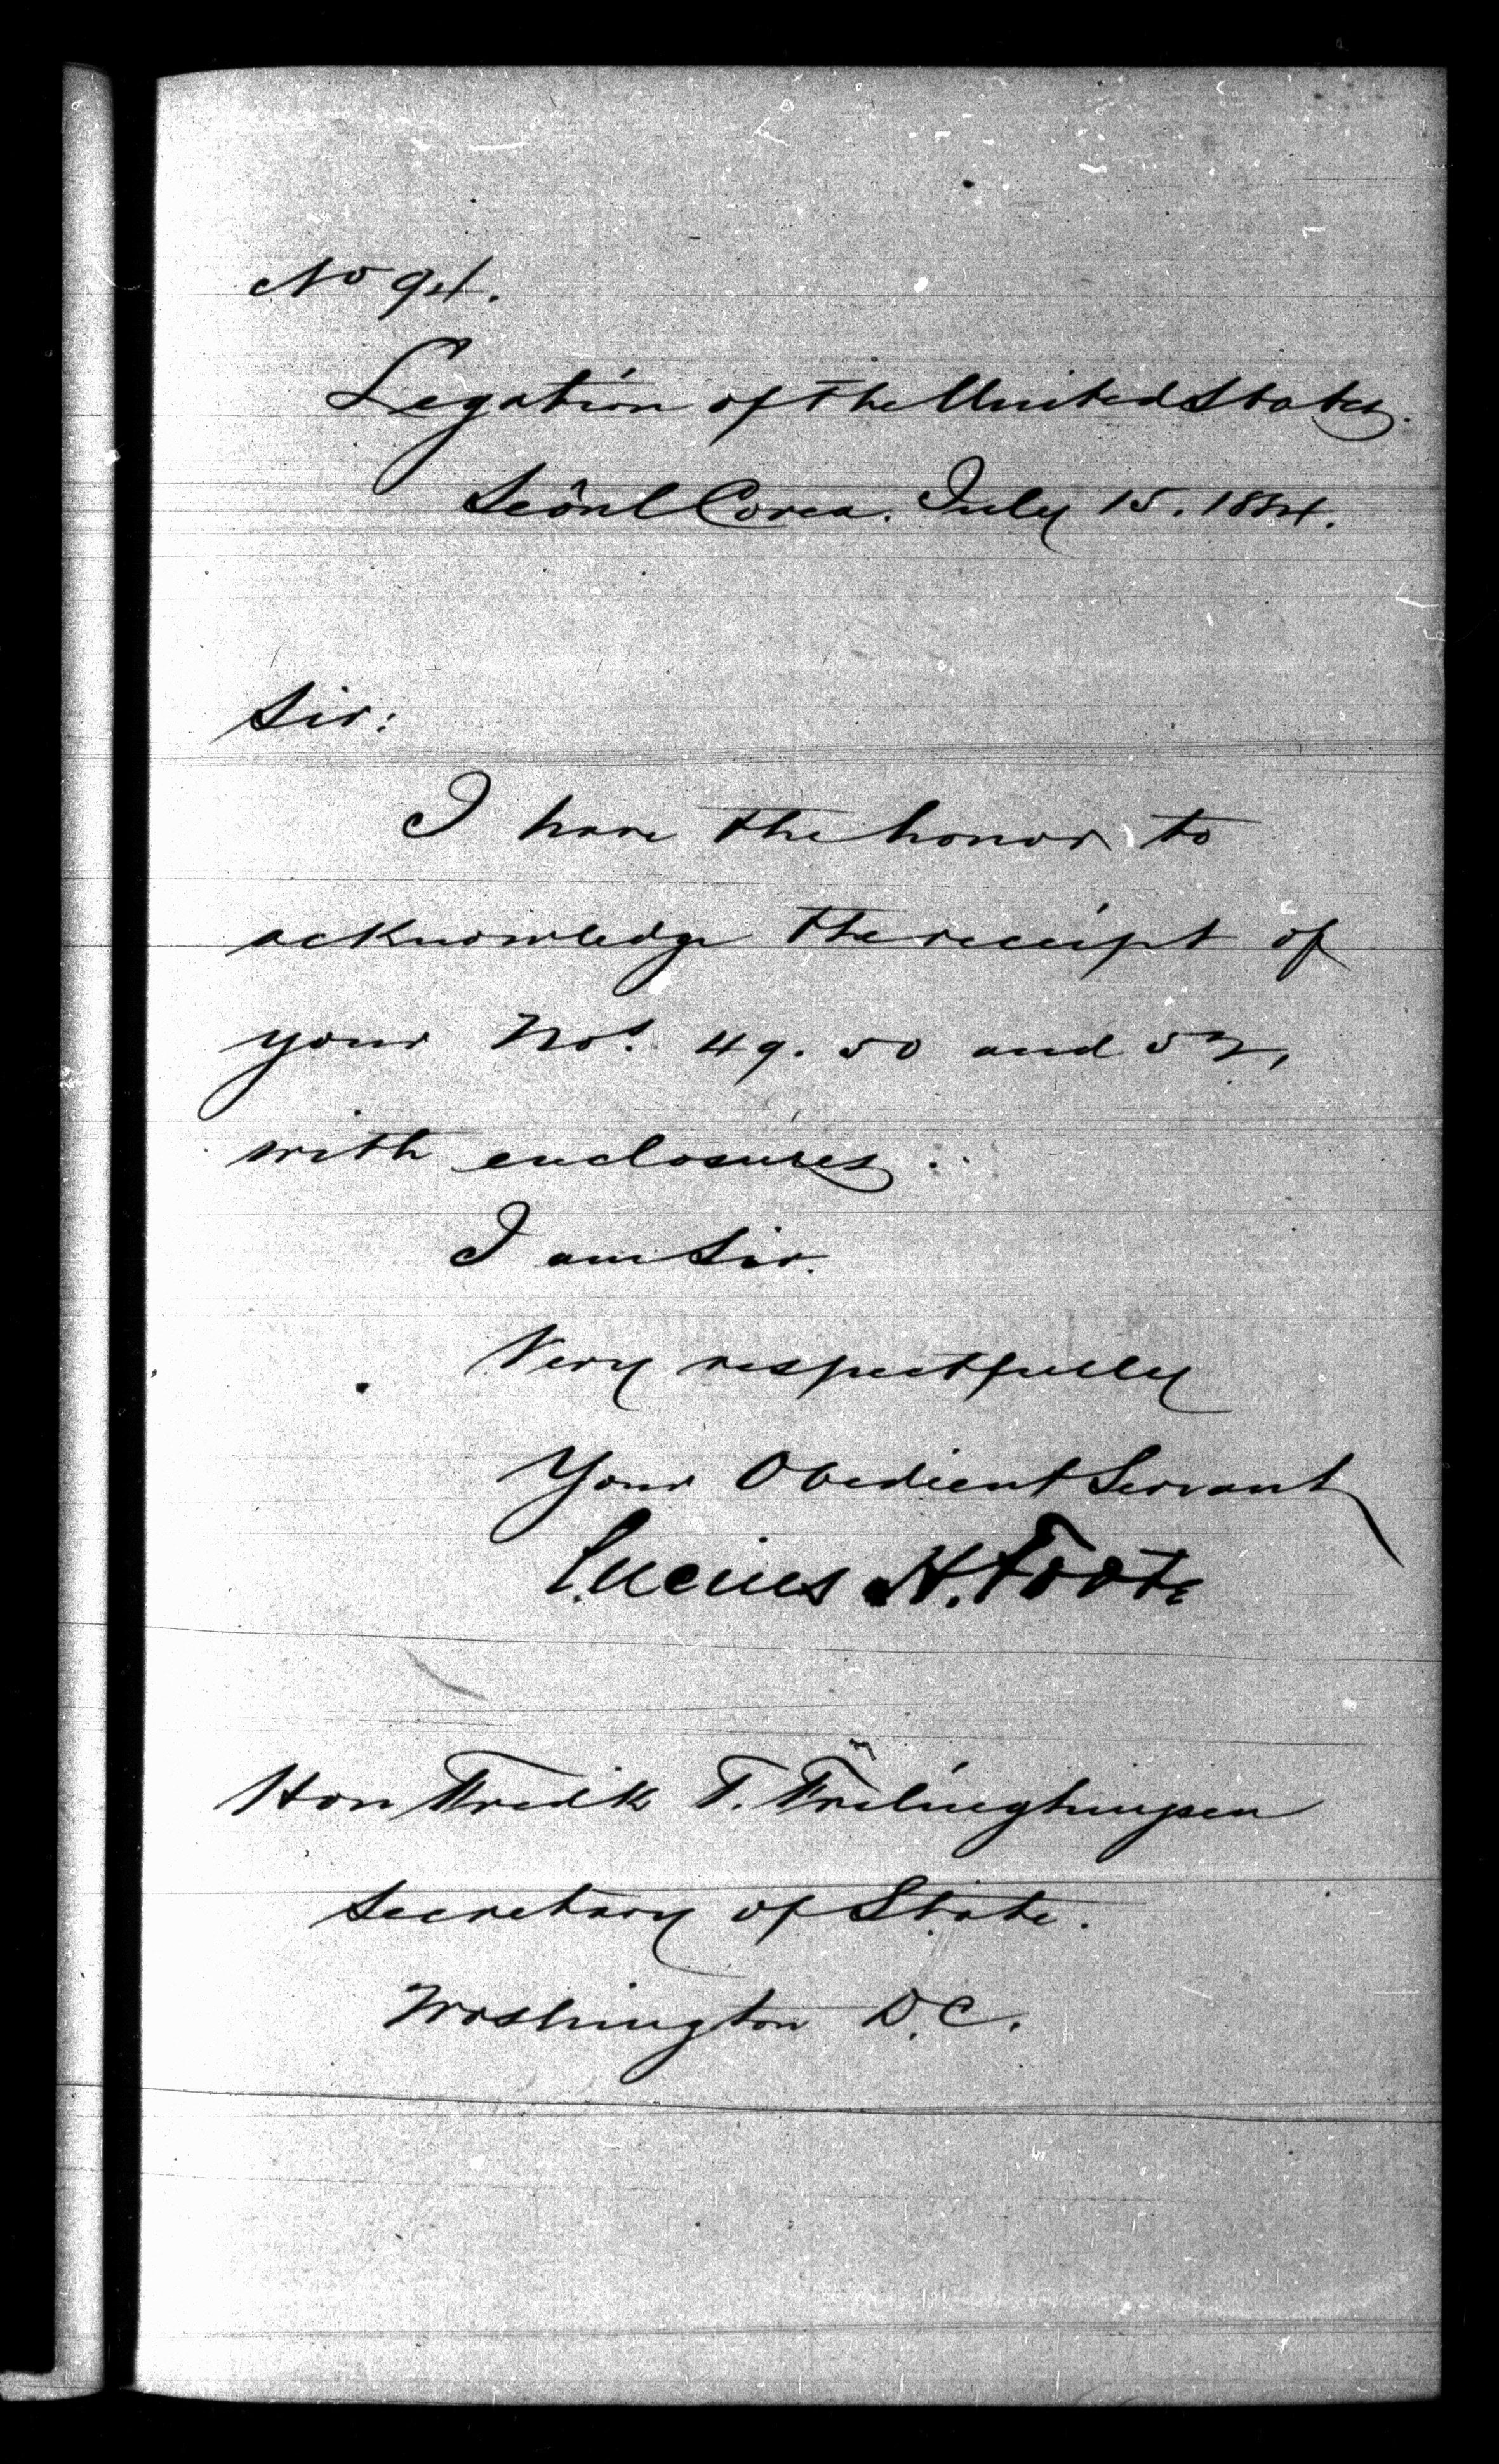 No 94.
Legation of the United States.
Seôul Corea. July 15. 1884.
Sir:
I have the honor to
acknowledge the receipt of
your Nos. 49. 50 and 52,
with enclosures.
I am Sir.
Very respectfully
Your Obedient Servant
Lucius H. Foote
Hon Fredk T. Frelinghuysen
Secretary of State.
Washington D.C.